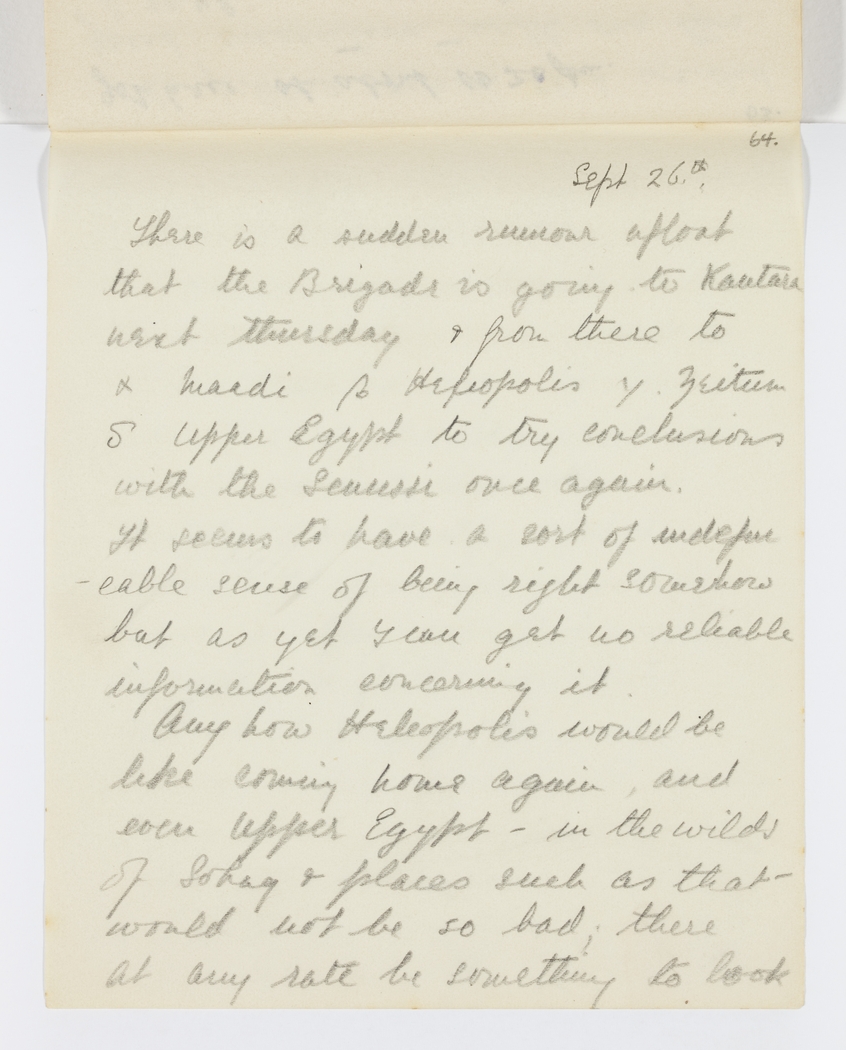 64.
Sept 26.th
There is a sudden rumour afloat
that the Brigade is going to Kantara
next Thursday & from there to
α Maadi β Heliopolis γ. Zeitun
δ Upper Egypt to try conclusions
with the Senussi once again.
It seems to have a sort of indefin
-eable sense of being right somehow
but as yet I can get no reliable
information concerning it.
Any how Heleopolis would be
like coming home again, and
even Upper Egypt - in the wilds
of Sohag & places such as that -
would not be so bad; there
at any rate be something to look